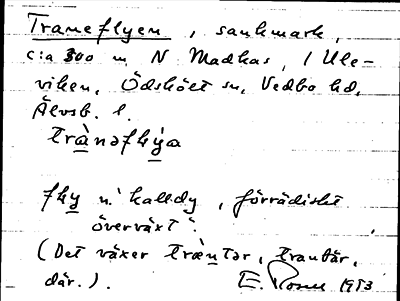 Traneflyen, sankmark,
c:a 300 m N Madkas, i Ule-
viken, ÖdsköLt sn, Vedbo hd,
Älvsb. l.
trànəflýa
fly n. kalldy, förrädiskt
överväxt.
(Det växer træntər, tranbär,
där.). E. Rosell 1953